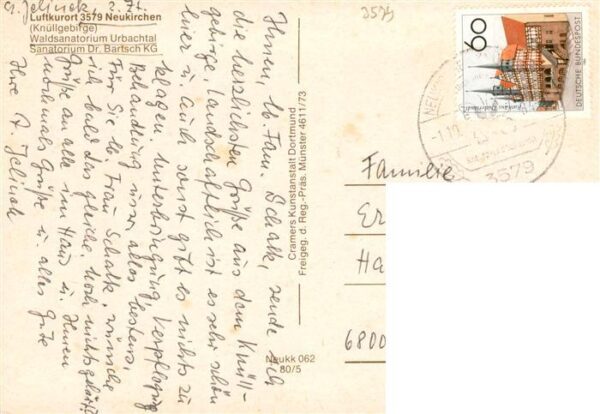 A. Jelinek, z. Zt.
Luftkurort 3579 Neukirchen
(Knüllgebirge)
Waldsanatorium Urbachtal
Sanatorium Dr. Bartsch KG
Ihnen, lb. Fam. Schalk, sende ich
die herzlichsten Grüße aus dem Knüll-
gebirge. Landschaftlich ist es sehr schön
hier u. auch sonst gibt es nichts zu
klagen. Unterbringung, Verpflegung,
Behandlung usw. alles bestens.
Für Sie, lb. Frau Schalk, wünsche
ich bald das gleiche. Noch nichts gehört?
Grüße an alle im Haus u. Ihnen
nochmals Grüße u. alles Gute
Ihre A. Jelinek
Cramers Kunstanstalt Dortmund
Freigeg. d. Reg.-Präs. Münster 4611/73
Neukk 062
80/5
3579
60
DEUTSCHE BUNDESPOST
NEUKIRCHEN
-1.10.
3579
Familie
Er
Ha
6800